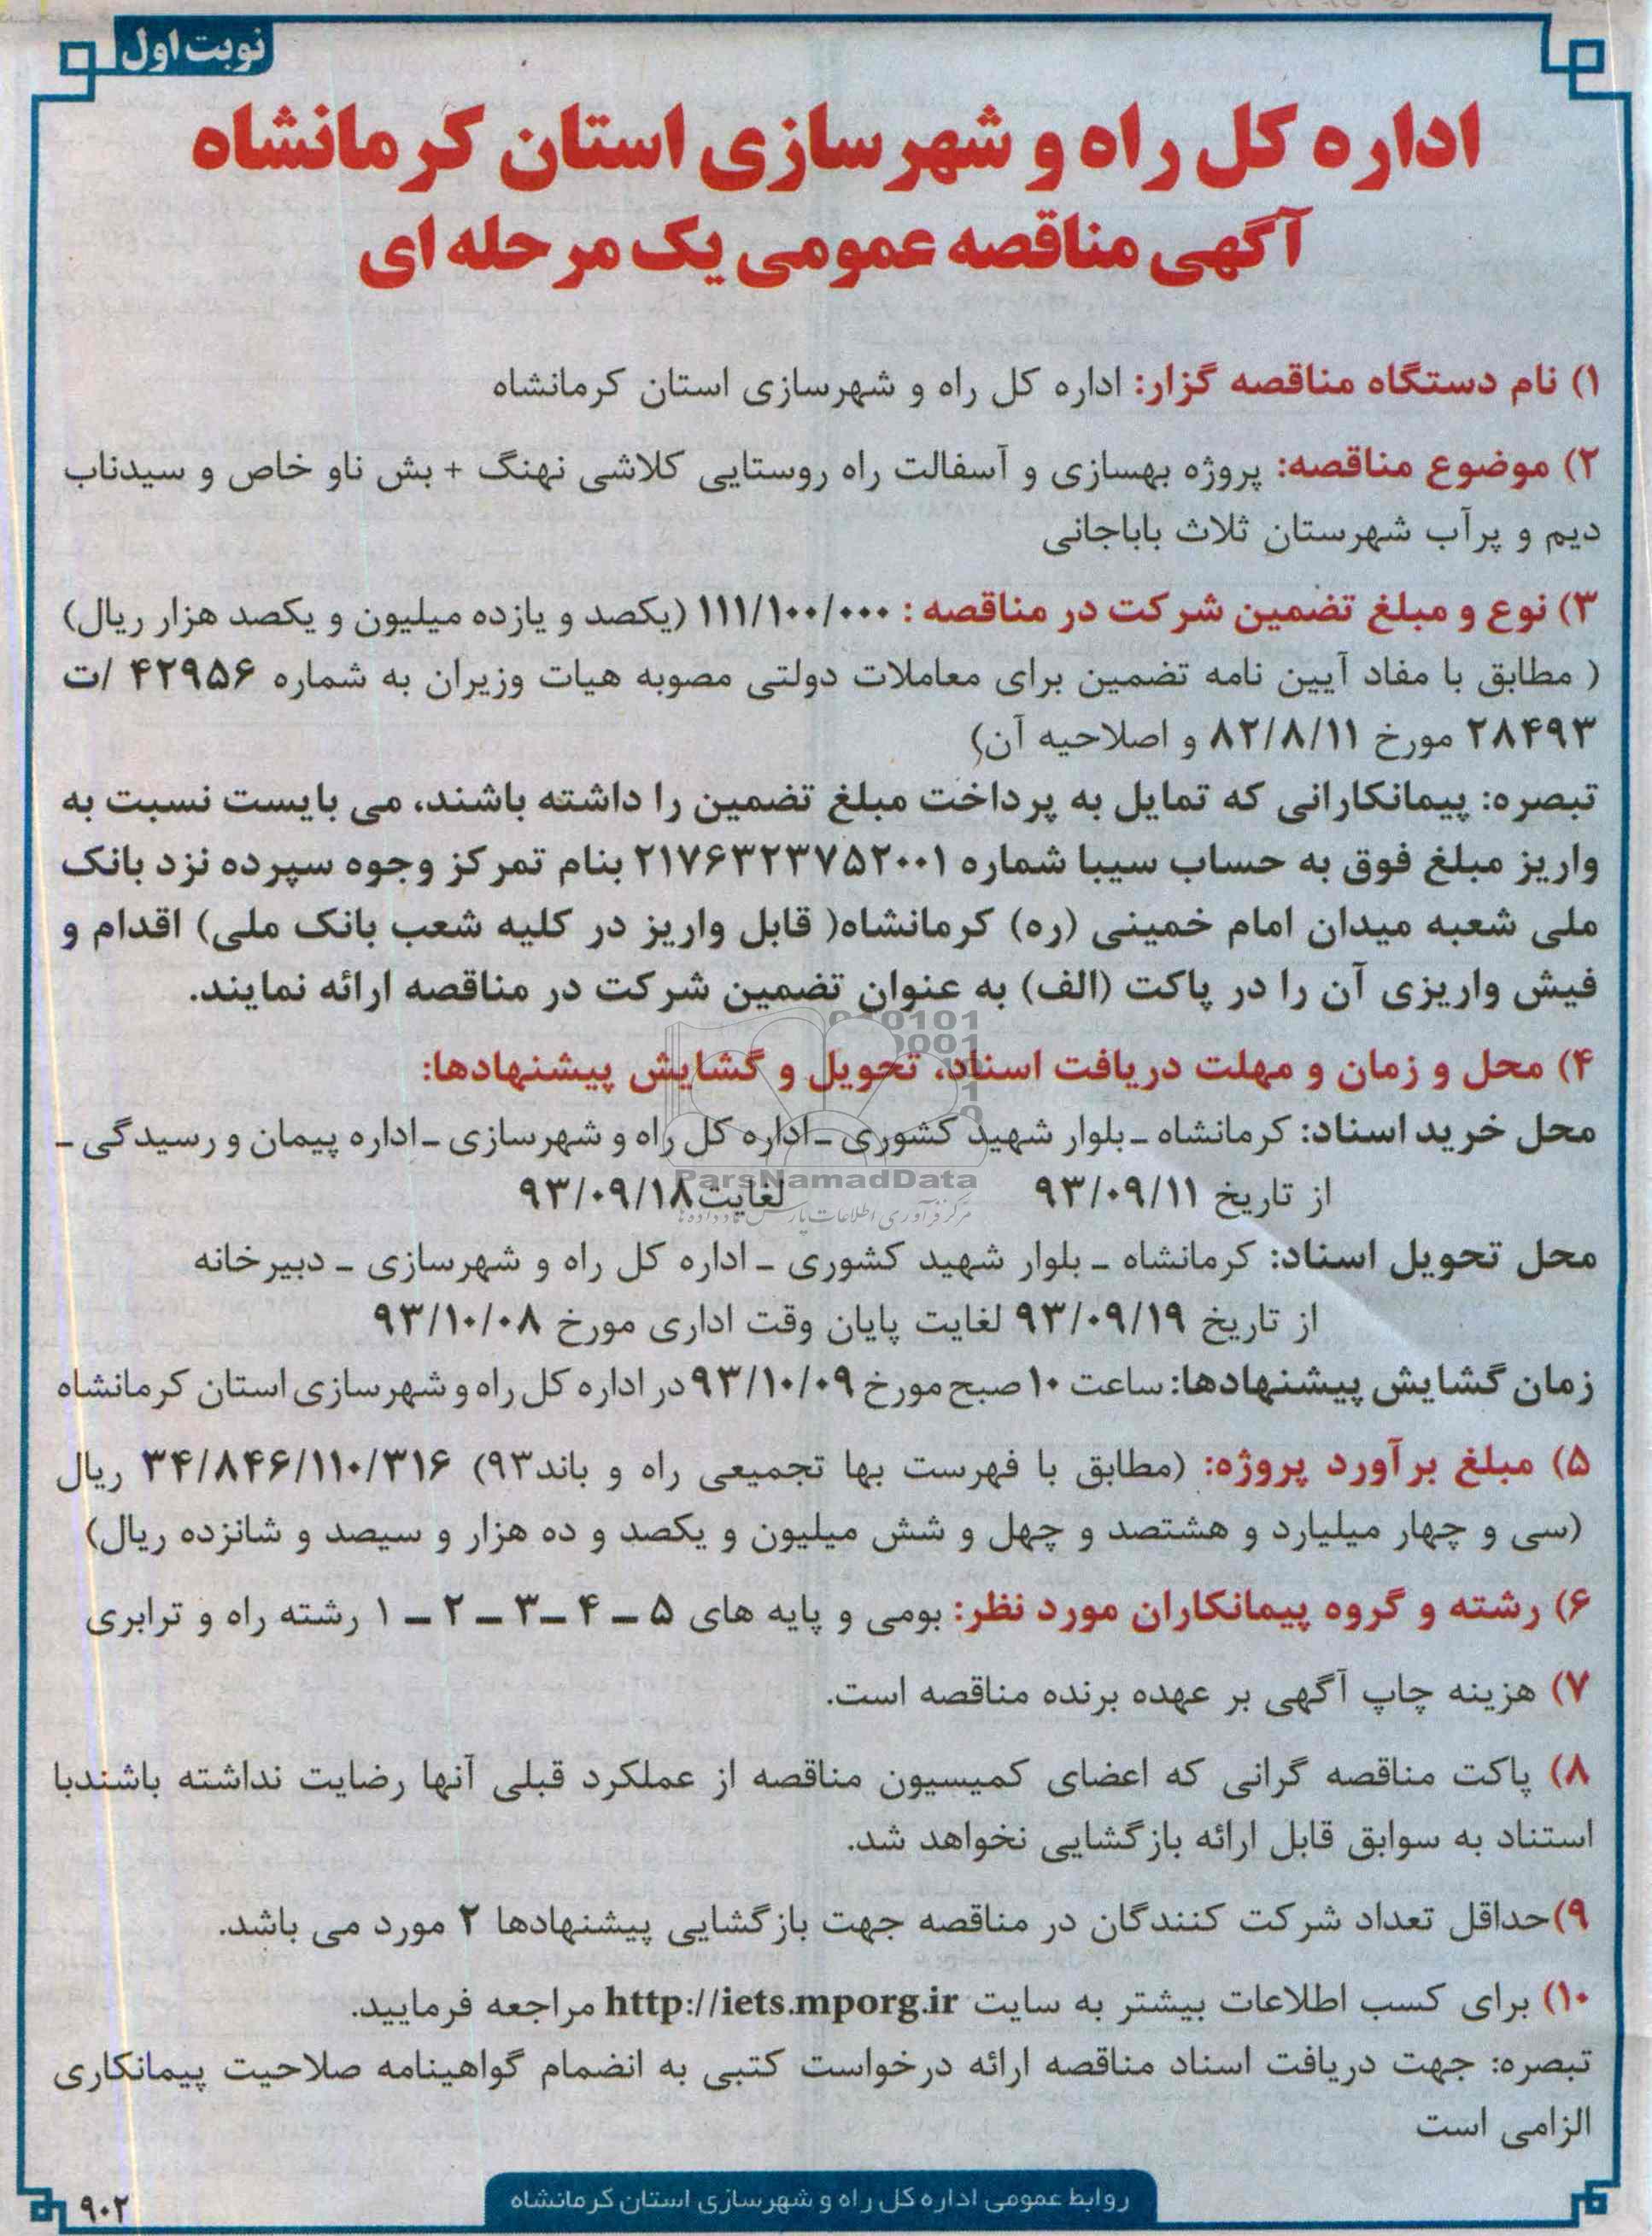 نوبت اول
اداره کل راه و شهرسازی استان کرمانشاه
آگهی مناقصه عمومی یک مرحله ای
۱) نام دستگاه مناقصه گزار: اداره کل راه و شهرسازی استان کرمانشاه
۲) موضوع مناقصه: پروژه بهسازی و آسفالت راه روستایی کلاشی نهنگ + بش ناو خاص و سیدناب
دیم و پرآب شهرستان ثلاث باباجانی
۳) نوع و مبلغ تضمین شرکت در مناقصه : ۱۱۱/۱۰۰/۰۰۰ (یکصد و یازده میلیون و یکصد هزار ریال)
( مطابق با مفاد آیین نامه تضمین برای معاملات دولتی مصوبه هیات وزیران به شماره ۴۲۹۵۶ /ت
۲۸۴۹۳ مورخ ۸۲/۸/۱۱ و اصلاحیه آن)
تبصره: پیمانکارانی که تمایل به پرداخت مبلغ تضمین را داشته باشند، می بایست نسبت به
واریز مبلغ فوق به حساب سیبا شماره ۲۱۷۶۳۲۳۷۵۲۰۰۱ بنام تمرکز وجوه سپرده نزد بانک
ملی شعبه میدان امام خمینی (ره) کرمانشاه( قابل واریز در کلیه شعب بانک ملی) اقدام و
فیش واریزی آن را در پاکت (الف) به عنوان تضمین شرکت در مناقصه ارائه نمایند.
۴) محل و زمان و مهلت دریافت اسناد، تحویل و گشایش پیشنهادها:
محل خرید اسناد: کرمانشاه ـ بلوار شهید کشوری ـ اداره کل راه و شهرسازی ـ اداره پیمان و رسیدگی ـ
ParsNamadData
از تاریخ ۹۳/۰۹/۱۱ لغایت ۹۳/۰۹/۱۸
مرکز فرآوری اطلاعات پارس نماد داده ها
محل تحویل اسناد: کرمانشاه ـ بلوار شهید کشوری ـ اداره کل راه و شهرسازی ـ دبیرخانه
از تاریخ ۹۳/۰۹/۱۹ لغایت پایان وقت اداری مورخ ۹۳/۱۰/۰۸
زمان گشایش پیشنهادها: ساعت ۱۰ صبح مورخ ۹۳/۱۰/۰۹ در اداره کل راه و شهرسازی استان کرمانشاه
۵) مبلغ برآورد پروژه: (مطابق با فهرست بها تجمیعی راه و باند۹۳) ۳۴/۸۴۶/۱۱۰/۳۱۶ ریال
(سی و چهار میلیارد و هشتصد و چهل و شش میلیون و یکصد و ده هزار و سیصد و شانزده ریال)
۶) رشته و گروه پیمانکاران مورد نظر: بومی و پایه های ۵ ـ ۴ ـ ۳ ـ ۲ ـ ۱ رشته راه و ترابری
۷) هزینه چاپ آگهی بر عهده برنده مناقصه است.
۸) پاکت مناقصه گرانی که اعضای کمیسیون مناقصه از عملکرد قبلی آنها رضایت نداشته باشندبا
استناد به سوابق قابل ارائه بازگشایی نخواهد شد.
۹)حداقل تعداد شرکت کنندگان در مناقصه جهت بازگشایی پیشنهادها ۲ مورد می باشد.
۱۰) برای کسب اطلاعات بیشتر به سایت http://iets.mporg.ir مراجعه فرمایید.
تبصره: جهت دریافت اسناد مناقصه ارائه درخواست کتبی به انضمام گواهینامه صلاحیت پیمانکاری
الزامی است
روابط عمومی اداره کل راه و شهرسازی استان کرمانشاه
۹۰۲